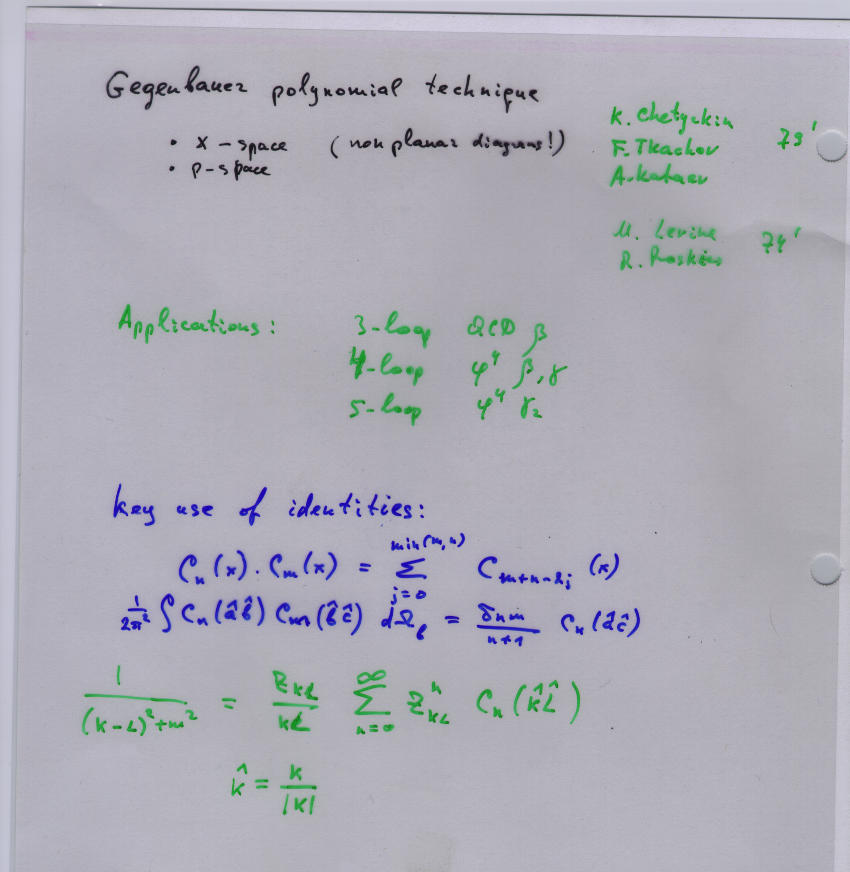 Gegenbauer polynomial technique
• x-space (nonplanar diagrams!)
• p-space
K. Chetyrkin
F. Tkachov 79'
A. Kataev
M. Levine 74'
R. Roskies
Applications: 3-loop QCD β
4-loop φ⁴ β, γ
5-loop φ⁴ γ₂
key use of identities:
Cₙ(x) · Cₘ(x) = ∑_{j=0}^{min(m,n)} C_{m+n-2j}(x)
1/(2π²) ∫ Cₙ(âb̂) Cₘ(b̂ĉ) dΩ_b = δₙₘ/(n+1) Cₙ(âĉ)
1/((K-L)²+m²) = Z_{KL}/(KL) ∑_{n=0}^{∞} Z_{KL}^n Cₙ(K̂L̂)
K̂ = K/|K|